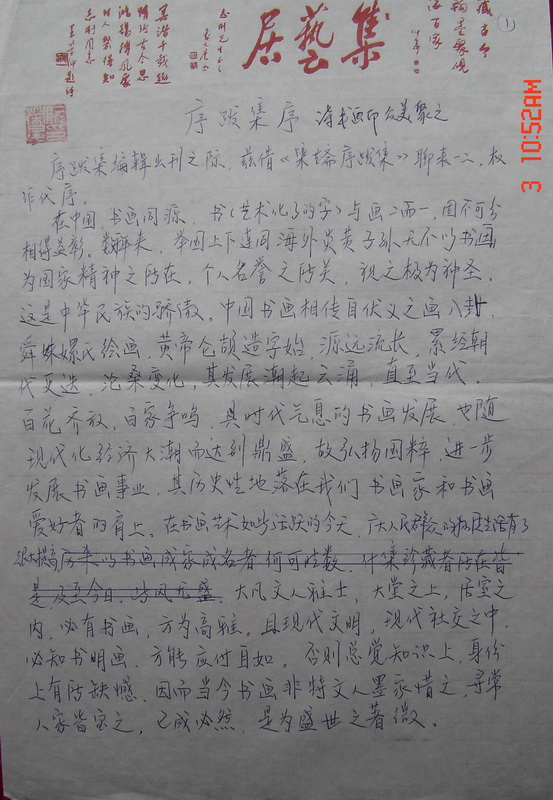 集藝居
①
3 10:52AM
序跋集序 诗书画印合美聚之
序跋集编辑出刊之际，兹借《集斋序跋集》聊表一二，权
作代序。
在中国，书画同源，书(艺术化了的字)与画二而一，固不可分
相得益彰。数醉来，举国上下连同海外炎黄子孙无不以书画
为国家精神之所在，个人名誉之所关，视之极为神圣。
这是中华民族的骄傲。中国书画相传自伏义之画八卦，
舜妹嫘氏绘画，黄帝仓颉造字始，源远流长，累经朝
代更迭，沧桑变化，其发展潮起云涌，直至当代。
百花齐放，百家争鸣，具时代气息的书画发展，也随
现代化经济大潮而达到鼎盛，故弘扬国粹，进一步
发展书画事业，其历史性地落在我们书画家和书画
爱好者的肩上。在书画艺术如此活跃的今天，广大人民群众的物质生活有了
很大提高历来以书画成家成名者何可胜数，什集珍藏者所在皆
是，及至今日，此风尤盛，大凡文人雅士，大堂之上，居室之
内，必有书画，方为高雅。且现代文明，现代社交之中，
必知书明画，方能应付自如。否则总觉知识上，身份
上有所缺憾，因而当今书画非特文人墨家惜之，寻常
人家皆宝之，已成必然，是为盛世之著微。